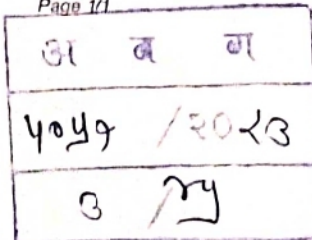 Page 1/1
अ ब ग
५०५१ /२०२३
३ /२५